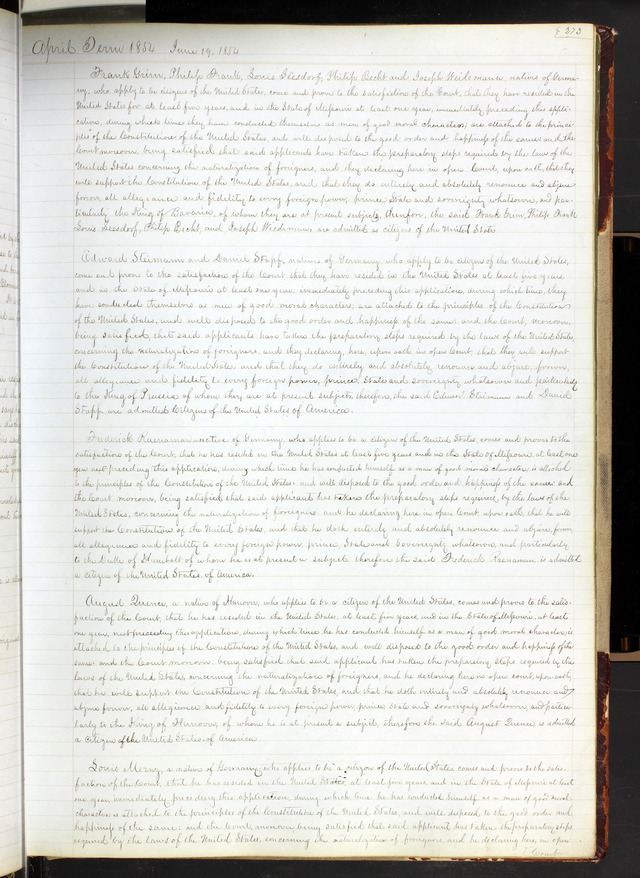 April Term 1854 June 19, 1854
p. 373
Frank Grim, Philip Frank, Louis Ilesdorf, Philip Becht and Joseph Weidemann, natives of Germa-
ny, who apply to be citizens of the United States, come and prove to the satisfaction of the Court, that they have resided in the
United States for at least five years, and in the State of Missouri at least one year, immediately preceding this appli-
cation, during which times they have conducted themselves as men of good moral character, are attached to the princi-
ples of the Constitution of the United States, and well disposed to the good order and happiness of the same and the
Court moreover being satisfied that said applicants have taken the preparatory steps required by the laws of the
United States concerning the naturalization of foreigners, and they declaring here in open Court, upon oath, that they
will support the Constitution of the United States, and that they do entirely and absolutely renounce and abjure
forever all allegiance and fidelity to every foreign power, prince, State and sovereignty whatsoever, and par-
ticularly the King of Bavaria, of whom they are at present subjects, therefore, the said Frank Grim, Philip Frank
Louis Ilesdorf, Philip Becht, and Joseph Weidemann are admitted as citizens of the United States
Edward Steimann and Daniel Stapf, natives of Germany, who apply to be citizens of the United States,
come and prove to the satisfaction of the Court that they have resided in the United States at least five years
and in the State of Missouri at least one year, immediately preceding this application, during which time, they
have conducted themselves as men of good moral character, are attached to the principles of the Constitution
of the United States, and well disposed to the good order and happiness of the same and the Court, moreover,
being satisfied, that said applicants have taken the preparatory steps required by the laws of the United States,
concerning the naturalization of foreigners, and they declaring, here, upon oath in open Court, that they will support
the Constitution of the United States, and that they do entirely and absolutely renounce and abjure, forever,
all allegiance and fidelity to every foreign power, prince, State and sovereignty whatsoever and particularly
to the King of Prussia of whom they are at present subjects, therefore, the said Edward Steimann and Daniel
Stapf are admitted Citizens of the United States of America.
Frederick Rasnaman native of Germany, who applies to be a citizen of the United States, comes and proves to the
satisfaction of the Court, that he has resided in the United States at least five years and in the State of Missouri, at least one
year next preceding this application, during which time he has conducted himself as a man of good moral character is attached
to the principles of the Constitution of the United States and well disposed to the good order and happiness of the same: and
the Court moreover, being satisfied that said applicant has taken the preparatory steps required by the laws of the
United States, concerning the naturalization of foreigners and he declaring here in open Court upon oath, that he will
support the Constitution of the United States, and that he doth entirely and absolutely renounce and abjure, forever
all allegiance and fidelity to every foreign power, prince, State and Sovereignty whatsoever, and particularly
to the Duke of of whom he is at present a subject, therefore the said Frederick Rasnaman, is admitted
a citizen of the United States, of America.
August Quence, a native of Hanover, who applies to be a citizen of the United States, comes and proves to the satis-
faction of the Court, that he has resided in the United States, at least five years, and in the State of Missouri, at least
one year, next preceding this application, during which time he has conducted himself as a man of good moral character, is
attached to the principles of the Constitution of the United States, and well disposed to the good order and happiness of the
same: and the Court moreover, being satisfied that said applicant has taken the preparatory steps required by the
laws of the United States concerning the naturalization of foreigners, and he declaring here in open court, upon oath,
that he will support the Constitution of the United States, and that he doth entirely and absolutely renounce and
abjure forever, all allegiance and fidelity to every foreign power, prince State and sovereignty whatsoever, and particu-
larly to the King of Hanover, of whom he is at present a subject, therefore the said August Quence is admitted
a Citizen of the United States of America.
Louis Merz, a native of Germany, who applies to be a citizen of the United States comes and proves to the satis-
faction of the Court, that he has resided in the United States, at least five years, and in the State of Missouri at least
one year immediately preceding this application, during which time he has conducted himself as a man of good moral
character is attached to the principles of the Constitution of the United States, and well disposed, to the good order and
happiness of the same: and the Court moreover being satisfied that said applicant has taken the preparatory steps
required by the laws of the United States, concerning the naturalization of foreigners, and he declaring here, in open
Court